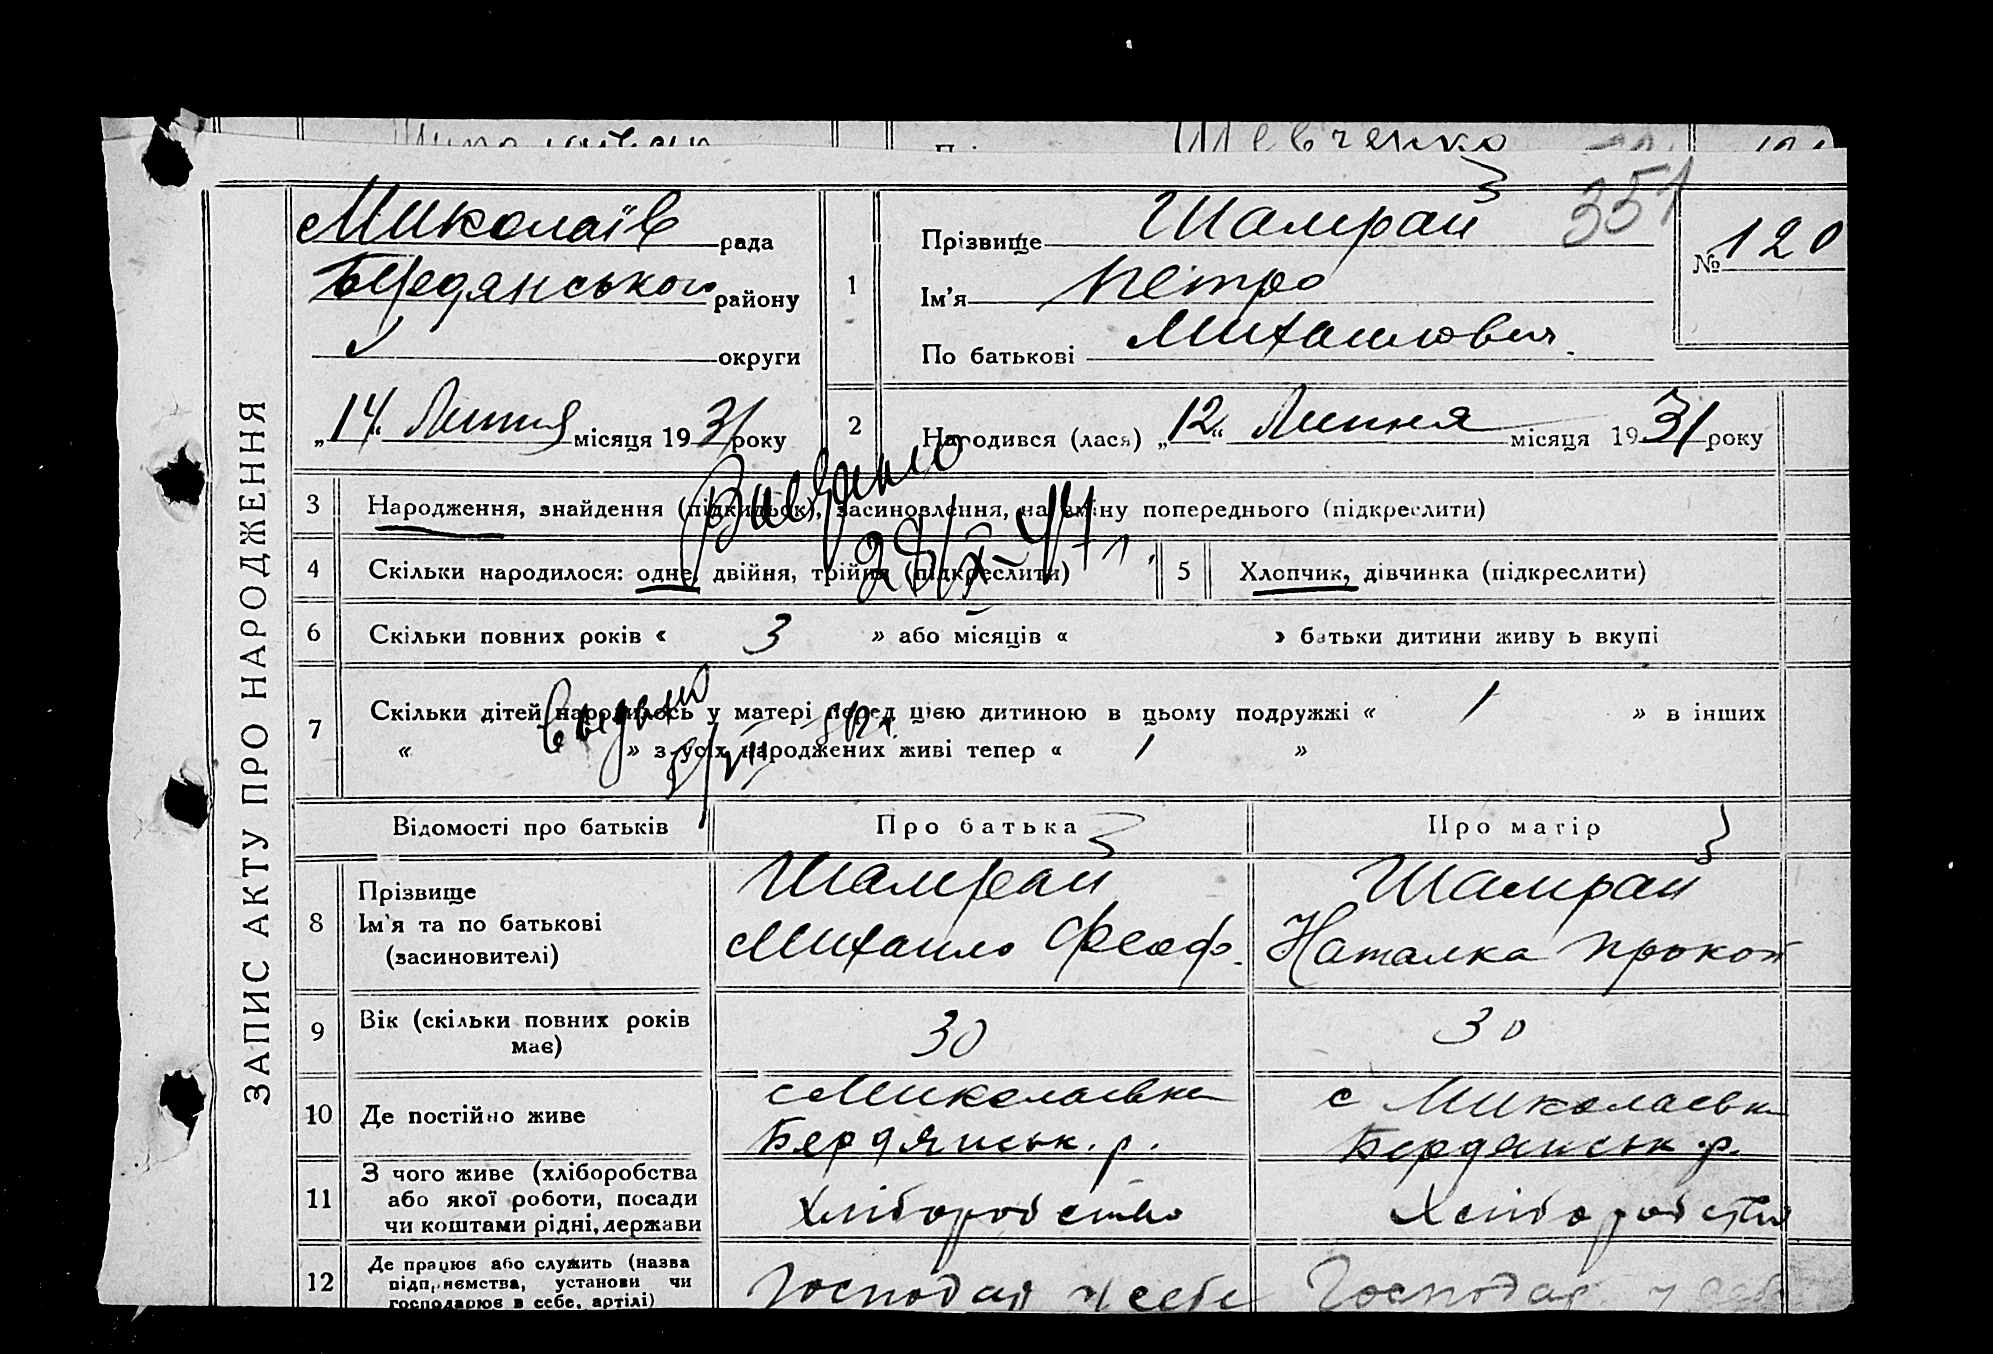 Шевченко
ЗАПИС АКТУ ПРО НАРОДЖЕННЯ
Миколаїв рада
Бердянського району
округи
„14“ Липня місяця 1931 року
1
Прізвище Шамрай
Ім'я Петро
По батькові Михайлович
351
№ 120
2 Народився (лася) „12“ Липня місяця 1931 року
3 Народження, знайдення (підкидьок), засиновлення, на зміну попереднього (підкреслити)
4 Скільки народилося: одне, двійня, трійня (підкреслити)
5 Хлопчик, дівчинка (підкреслити)
6 Скільки повних років « 3 » або місяців « » батьки дитини живуть вкупі
7 Скільки дітей народилось у матері перед цією дитиною в цьому подружжі « 1 » в інших
« » з усіх народжених живі тепер « 1 »
Відомості про батьків
Про батька
Про матір
8 Прізвище
Ім'я та по батькові
(засиновителі)
Шамрай
Михайло Феоф.
Шамрай
Наталка Прокоп
9 Вік (скільки повних років
має)
30
30
10 Де постійно живе
с Миколаевка
Бердянськ. р.
с Миколаевка
Бердянськ. р.
11 З чого живе (хліборобства
або якої роботи, посади
чи коштами рідні, держави
Хліборобство
Хліборобство
12 Де працює або служить (назва
підприємства, установи чи
господарює в себе, артілі)
Господар у себе
Господар. у себе